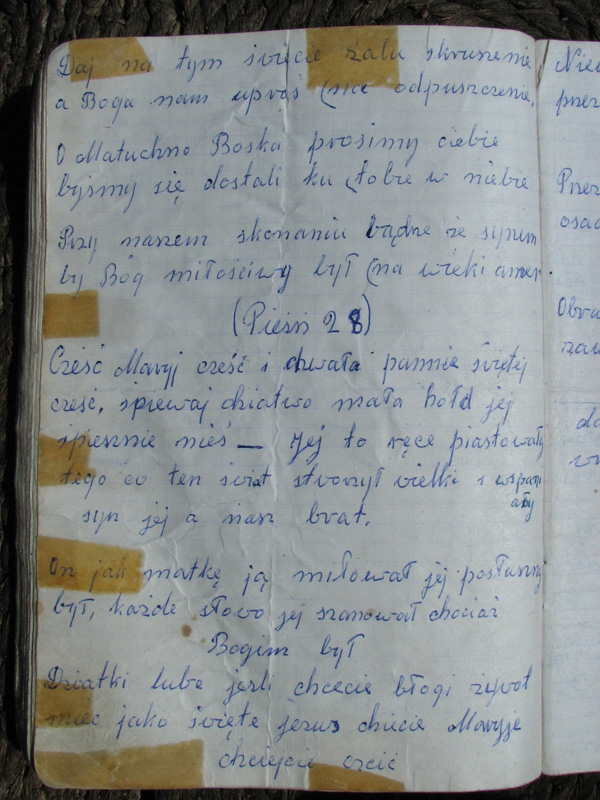 Daj na tym świecie żalu skruszenie
a Boga nam uproś (na odpuszczenie.
O Matuchno Boska prosimy ciebie
byśmy się dostali ku tobie w niebie
Przy naszem skonaniu bądze ze synem
by Bóg miłościwy był (na wieki amen.
(Pieśń 28)
Cześć Maryj cześć i chwała pannie świętej
cześć, śpiewaj dziatwo mała hołd jej
śpiesznie nieś — Jej to ręce piastowały
tego co ten świat stworzył wielki i wspani
ały
syn jej a nasz brat.
On jak matkę ją miłował jej posłuszny
był, każde słowo jej szanował chociaż
Bogim był
Dziatki lube jeśli chcecie błogi żywot
mieć jako święte jezus dziecie Maryje
chciejcie czcić
Niew
przez
Przez
osąd